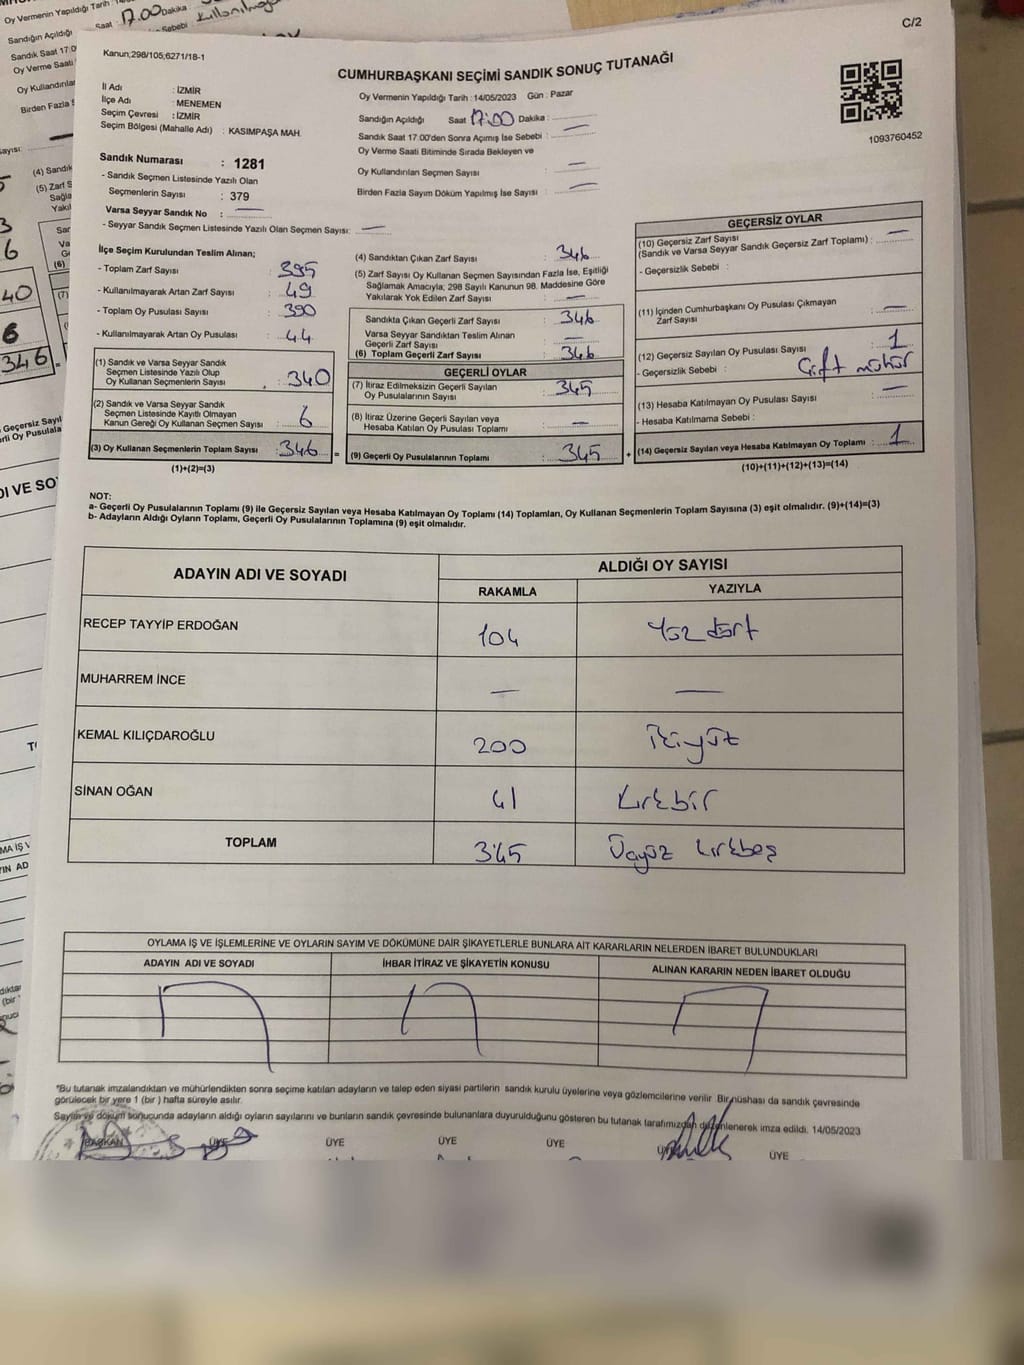 C/2
Kanun;298/105;6271/18-1
CUMHURBAŞKANI SEÇİMİ SANDIK SONUÇ TUTANAĞI
İl Adı : İZMİR
İlçe Adı : MENEMEN
Seçim Çevresi : İZMİR
Seçim Bölgesi (Mahalle Adı) : KASIMPAŞA MAH.
Oy Vermenin Yapıldığı Tarih : 14/05/2023 Gün : Pazar
Sandığın Açıldığı Saat 17:00 Dakika :
Sandık Saat 17:00'den Sonra Açımış İse Sebebi : —
Oy Verme Saati Bitiminde Sırada Bekleyen ve
Oy Kullandırılan Seçmen Sayısı : —
Birden Fazla Sayım Döküm Yapılmış İse Sayısı : —
1093760452
Sandık Numarası : 1281
- Sandık Seçmen Listesinde Yazılı Olan
Seçmenlerin Sayısı : 379
Varsa Seyyar Sandık No : —
- Seyyar Sandık Seçmen Listesinde Yazılı Olan Seçmen Sayısı: —
İlçe Seçim Kurulundan Teslim Alınan;
- Toplam Zarf Sayısı : 395
- Kullanılmayarak Artan Zarf Sayısı : 49
- Toplam Oy Pusulası Sayısı : 390
- Kullanılmayarak Artan Oy Pusulası : 44
(1) Sandık ve Varsa Seyyar Sandık
Seçmen Listesinde Yazılı Olup
Oy Kullanan Seçmenlerin Sayısı : 340
(2) Sandık ve Varsa Seyyar Sandık
Seçmen Listesinde Kayıtlı Olmayan
Kanun Gereği Oy Kullanan Seçmen Sayısı : 6
(3) Oy Kullanan Seçmenlerin Toplam Sayısı : 346 =
(1)+(2)=(3)
(4) Sandıktan Çıkan Zarf Sayısı : 346
(5) Zarf Sayısı Oy Kullanan Seçmen Sayısından Fazla İse, Eşitliği
Sağlamak Amacıyla; 298 Sayılı Kanunun 98. Maddesine Göre
Yakılarak Yok Edilen Zarf Sayısı : —
Sandıkta Çıkan Geçerli Zarf Sayısı : 346
Varsa Seyyar Sandıktan Teslim Alınan
Geçerli Zarf Sayısı : —
(6) Toplam Geçerli Zarf Sayısı : 346
GEÇERLİ OYLAR
(7) İtiraz Edilmeksizin Geçerli Sayılan
Oy Pusulalarının Sayısı : 345
(8) İtiraz Üzerine Geçerli Sayılan veya
Hesaba Katılan Oy Pusulası Toplamı : —
(9) Geçerli Oy Pusulalarının Toplamı : 345 +
GEÇERSİZ OYLAR
(10) Geçersiz Zarf Sayısı
(Sandık ve Varsa Seyyar Sandık Geçersiz Zarf Toplamı) : —
- Geçersizlik Sebebi :
(11) İçinden Cumhurbaşkanı Oy Pusulası Çıkmayan
Zarf Sayısı : —
(12) Geçersiz Sayılan Oy Pusulası Sayısı : 1
- Geçersizlik Sebebi : Çift mühür
(13) Hesaba Katılmayan Oy Pusulası Sayısı : —
- Hesaba Katılmama Sebebi :
(14) Geçersiz Sayılan veya Hesaba Katılmayan Oy Toplamı : 1
(10)+(11)+(12)+(13)=(14)
NOT:
a- Geçerli Oy Pusulalarının Toplamı (9) ile Geçersiz Sayılan veya Hesaba Katılmayan Oy Toplamı (14) Toplamları, Oy Kullanan Seçmenlerin Toplam Sayısına (3) eşit olmalıdır. (9)+(14)=(3)
b- Adayların Aldığı Oyların Toplamı, Geçerli Oy Pusulalarının Toplamına (9) eşit olmalıdır.
ADAYIN ADI VE SOYADI ALDIĞI OY SAYISI
RAKAMLA YAZIYLA
RECEP TAYYİP ERDOĞAN 104 Yüz dört
MUHARREM İNCE — —
KEMAL KILIÇDAROĞLU 200 İkiyüz
SİNAN OĞAN 41 Kırkbir
TOPLAM 345 Üçyüz kırkbeş
OYLAMA İŞ VE İŞLEMLERİNE VE OYLARIN SAYIM VE DÖKÜMÜNE DAİR ŞİKAYETLERLE BUNLARA AİT KARARLARIN NELERDEN İBARET BULUNDUKLARI
ADAYIN ADI VE SOYADI İHBAR İTİRAZ VE ŞİKAYETİN KONUSU ALINAN KARARIN NEDEN İBARET OLDUĞU
*Bu tutanak imzalandıktan ve mühürlendikten sonra seçime katılan adayların ve talep eden siyasi partilerin sandık kurulu üyelerine veya gözlemcilerine verilir. Bir nüshası da sandık çevresinde
görülecek bir yere 1 (bir ) hafta süreyle asılır.
Sayım ve döküm sonucunda adayların aldığı oyların sayılarını ve bunların sandık çevresinde bulunanlara duyurulduğunu gösteren bu tutanak tarafımızdan düzenlenerek imza edildi. 14/05/2023
BAŞKAN ÜYE ÜYE ÜYE ÜYE ÜYE ÜYE